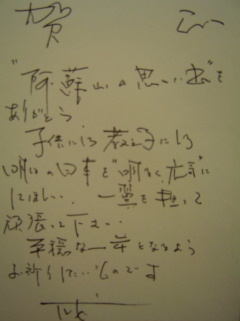 賀 正
"阿蘇山の思い出"を
ありがとう
子供にしろ教え子にしろ
明日の日本を"明るく、元気"に
してほしい. 一翼を担って
頑張って下さい.
平穏な一年となるよう
お祈りしているのです